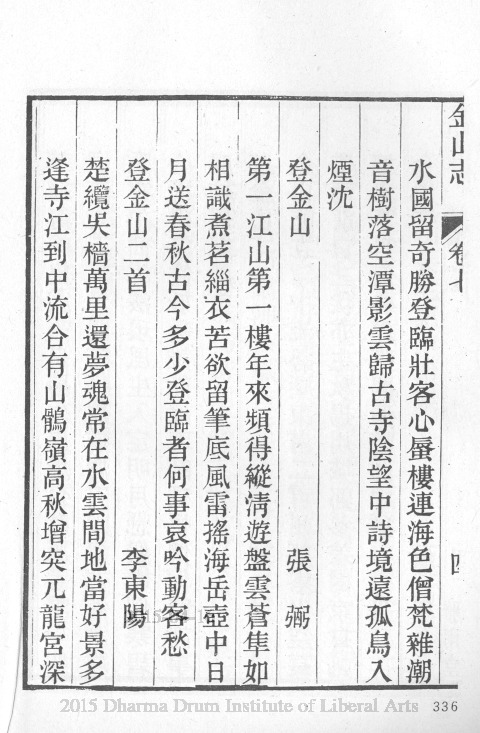 金山志
卷七
四
水國留奇勝登臨壯客心蜃樓連海色僧梵雜潮
音樹落空潭影雲歸古寺陰望中詩境遠孤鳥入
煙沈
登金山 張弼
第一江山第一樓年來頻得縱清遊盤雲蒼隼如
相識煮茗緇衣苦欲留筆底風雷搖海岳壺中日
月送春秋古今多少登臨者何事哀吟動客愁
登金山二首 李東陽
楚纜吳檣萬里還夢魂常在水雲間地當好景多
逢寺江到中流合有山鶻嶺高秋增突兀龍宮深
2015 Dharma Drum Institute of Liberal Arts
336